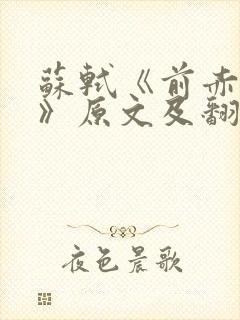 蘇軾《前赤
》原文及翻
夜色晨歌